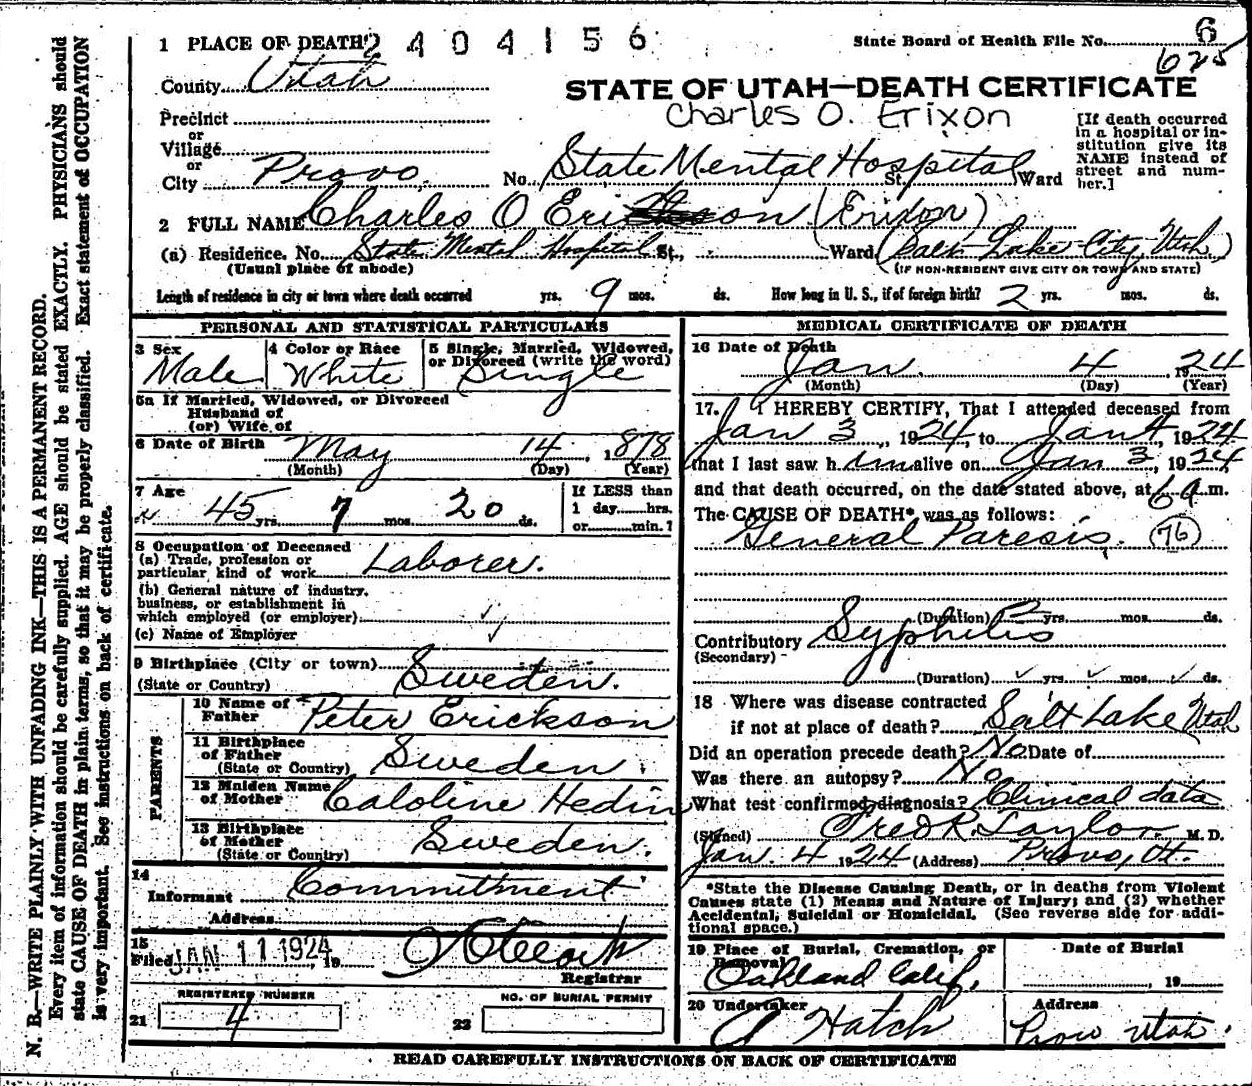 1 PLACE OF DEATH 2404156 State Board of Health File No. 6
625
County Utah
STATE OF UTAH—DEATH CERTIFICATE
Charles O. Erixon
Precinct
or
Village
or
City Provo No. State Mental Hospital St. Ward
[If death occurred
in a hospital or in-
stitution give its
NAME instead of
street and num-
ber.]
2 FULL NAME Charles O Eri son (Erixon)
(a) Residence. No. State Mental Hospital St., Ward (Salt Lake City, Utah)
(Usual place of abode) (IF NON-RESIDENT GIVE CITY OR TOWN AND STATE)
Length of residence in city or town where death occurred yrs. 9 mos. ds. How long in U. S., if of foreign birth? 2 yrs. mos. ds.
PERSONAL AND STATISTICAL PARTICULARS
3 Sex
Male
4 Color or Race
White
5 Single, Married, Widowed,
or Divorced (write the word)
Single
5a If Married, Widowed, or Divorced
Husband of
(or) Wife of
6 Date of Birth May 14, 1878
(Month) (Day) (Year)
7 Age
45 yrs. 7 mos. 20 ds.
If LESS than
1 day hrs.
or min.?
8 Occupation of Deceased
(a) Trade, profession or
particular kind of work Laborer.
(b) General nature of industry,
business, or establishment in
which employed (or employer)
(c) Name of Employer
9 Birthplace (City or town)
(State or Country) Sweden.
PARENTS
10 Name of
Father Peter Erickson
11 Birthplace
of Father
(State or Country) Sweden.
12 Maiden Name
of Mother Caloline Hedin
13 Birthplace
of Mother
(State or Country) Sweden.
14
Informant Commitment
Address
15
Filed JAN 11 1924, 19
Registrar
REGISTERED NUMBER
21 4
NO. OF BURIAL PERMIT
22
MEDICAL CERTIFICATE OF DEATH
16 Date of Death
Jan. 4, 1924
(Month) (Day) (Year)
17. I HEREBY CERTIFY, That I attended deceased from
Jan 3, 1924, to Jan 4, 1924
that I last saw him alive on Jan 3, 1924
and that death occurred, on the date stated above, at 6 a m.
The CAUSE OF DEATH* was as follows:
General Paresis. (76)
(Duration) yrs. mos. ds.
Contributory Syphilis
(Secondary)
(Duration) yrs. mos. ds.
18 Where was disease contracted
if not at place of death? Salt Lake Utah
Did an operation precede death? No Date of
Was there an autopsy? No
What test confirmed diagnosis? Clinical data
(Signed) Fred R. Taylor M. D.
Jan. 4 1924 (Address) Provo, Ut.
*State the Disease Causing Death, or in deaths from Violent
Causes state (1) Means and Nature of Injury; and (2) whether
Accidental, Suicidal or Homicidal. (See reverse side for addi-
tional space.)
19 Place of Burial, Cremation, or
Removal
Oakland Calif.
Date of Burial
, 19
20 Undertaker
Hatch
Address
Provo Utah.
READ CAREFULLY INSTRUCTIONS ON BACK OF CERTIFICATE
N. B.—WRITE PLAINLY WITH UNFADING INK—THIS IS A PERMANENT RECORD.
Every item of information should be carefully supplied. AGE should be stated EXACTLY. PHYSICIANS should
state CAUSE OF DEATH in plain terms, so that it may be properly classified. Exact statement of OCCUPATION
is very important. See instructions on back of certificate.